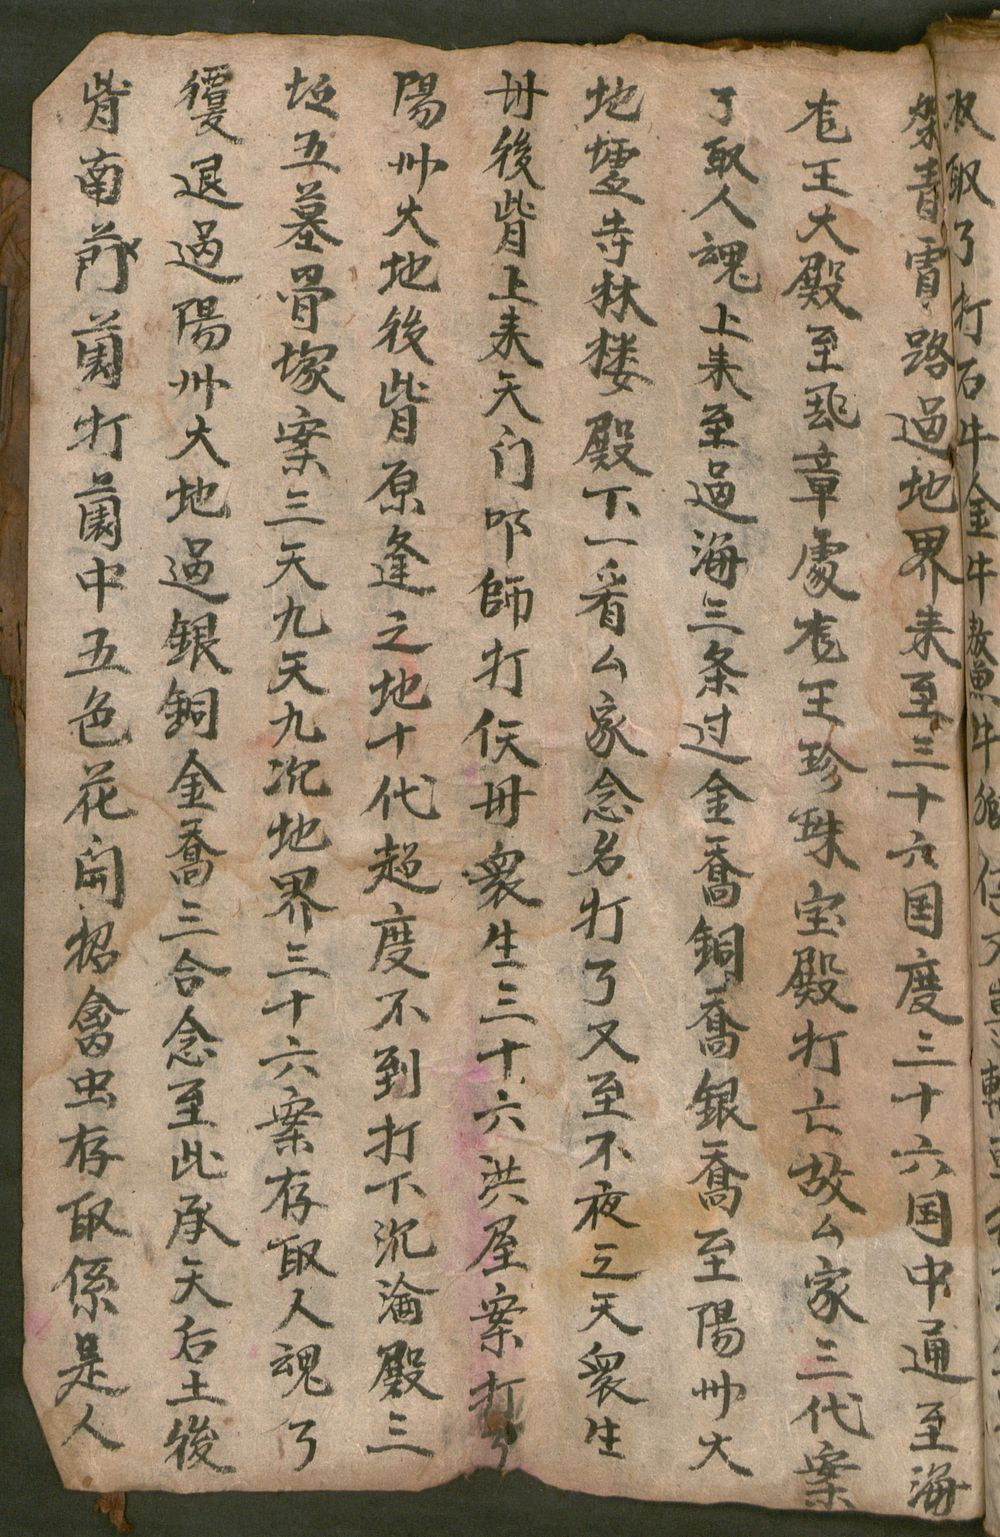 取了打石牛金牛敖魚牛
架青霄路過地界来至三十六国度三十六国中通至海
王大殿至章處王珍珠宝殿打亡故厶家三代案
了取人魂上来至過海三条过金喬銅喬銀喬至陽州大
地霊寺林楼殿下一看厶家念名打了又至不夜三天衆生
毋後背上来天门叩師打毋衆生三十六洪屋案打了
陽州大地後背原逢之地十代超度不到打下沉淪殿三
坵五墓骨塚案三天九天九沉地界三十六案存取人魂了
覆退過陽州大地過銀銅金喬三合念至此承天后土後
背南前薗打薗中五色花開招禽虫存取係是人